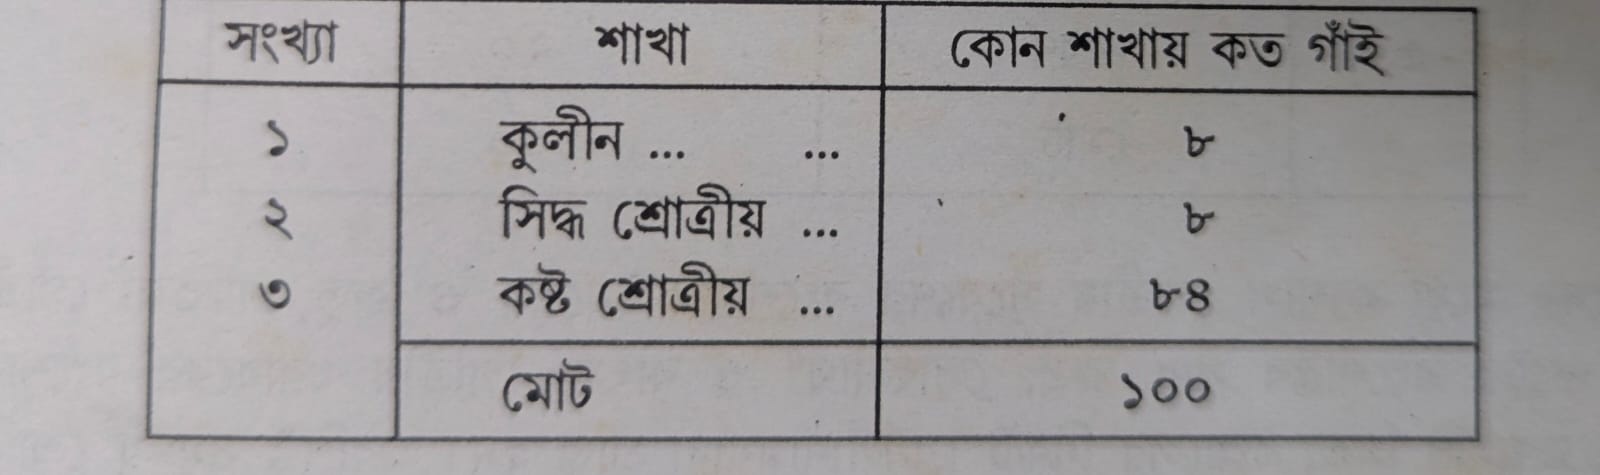 সংখ্যা শাখা কোন শাখায় কত গাঁই
১ কুলীন ... ... ৮
২ সিদ্ধ শ্রোত্রীয় ... ৮
৩ কষ্ট শ্রোত্রীয় ... ৮৪
মোট ১০০